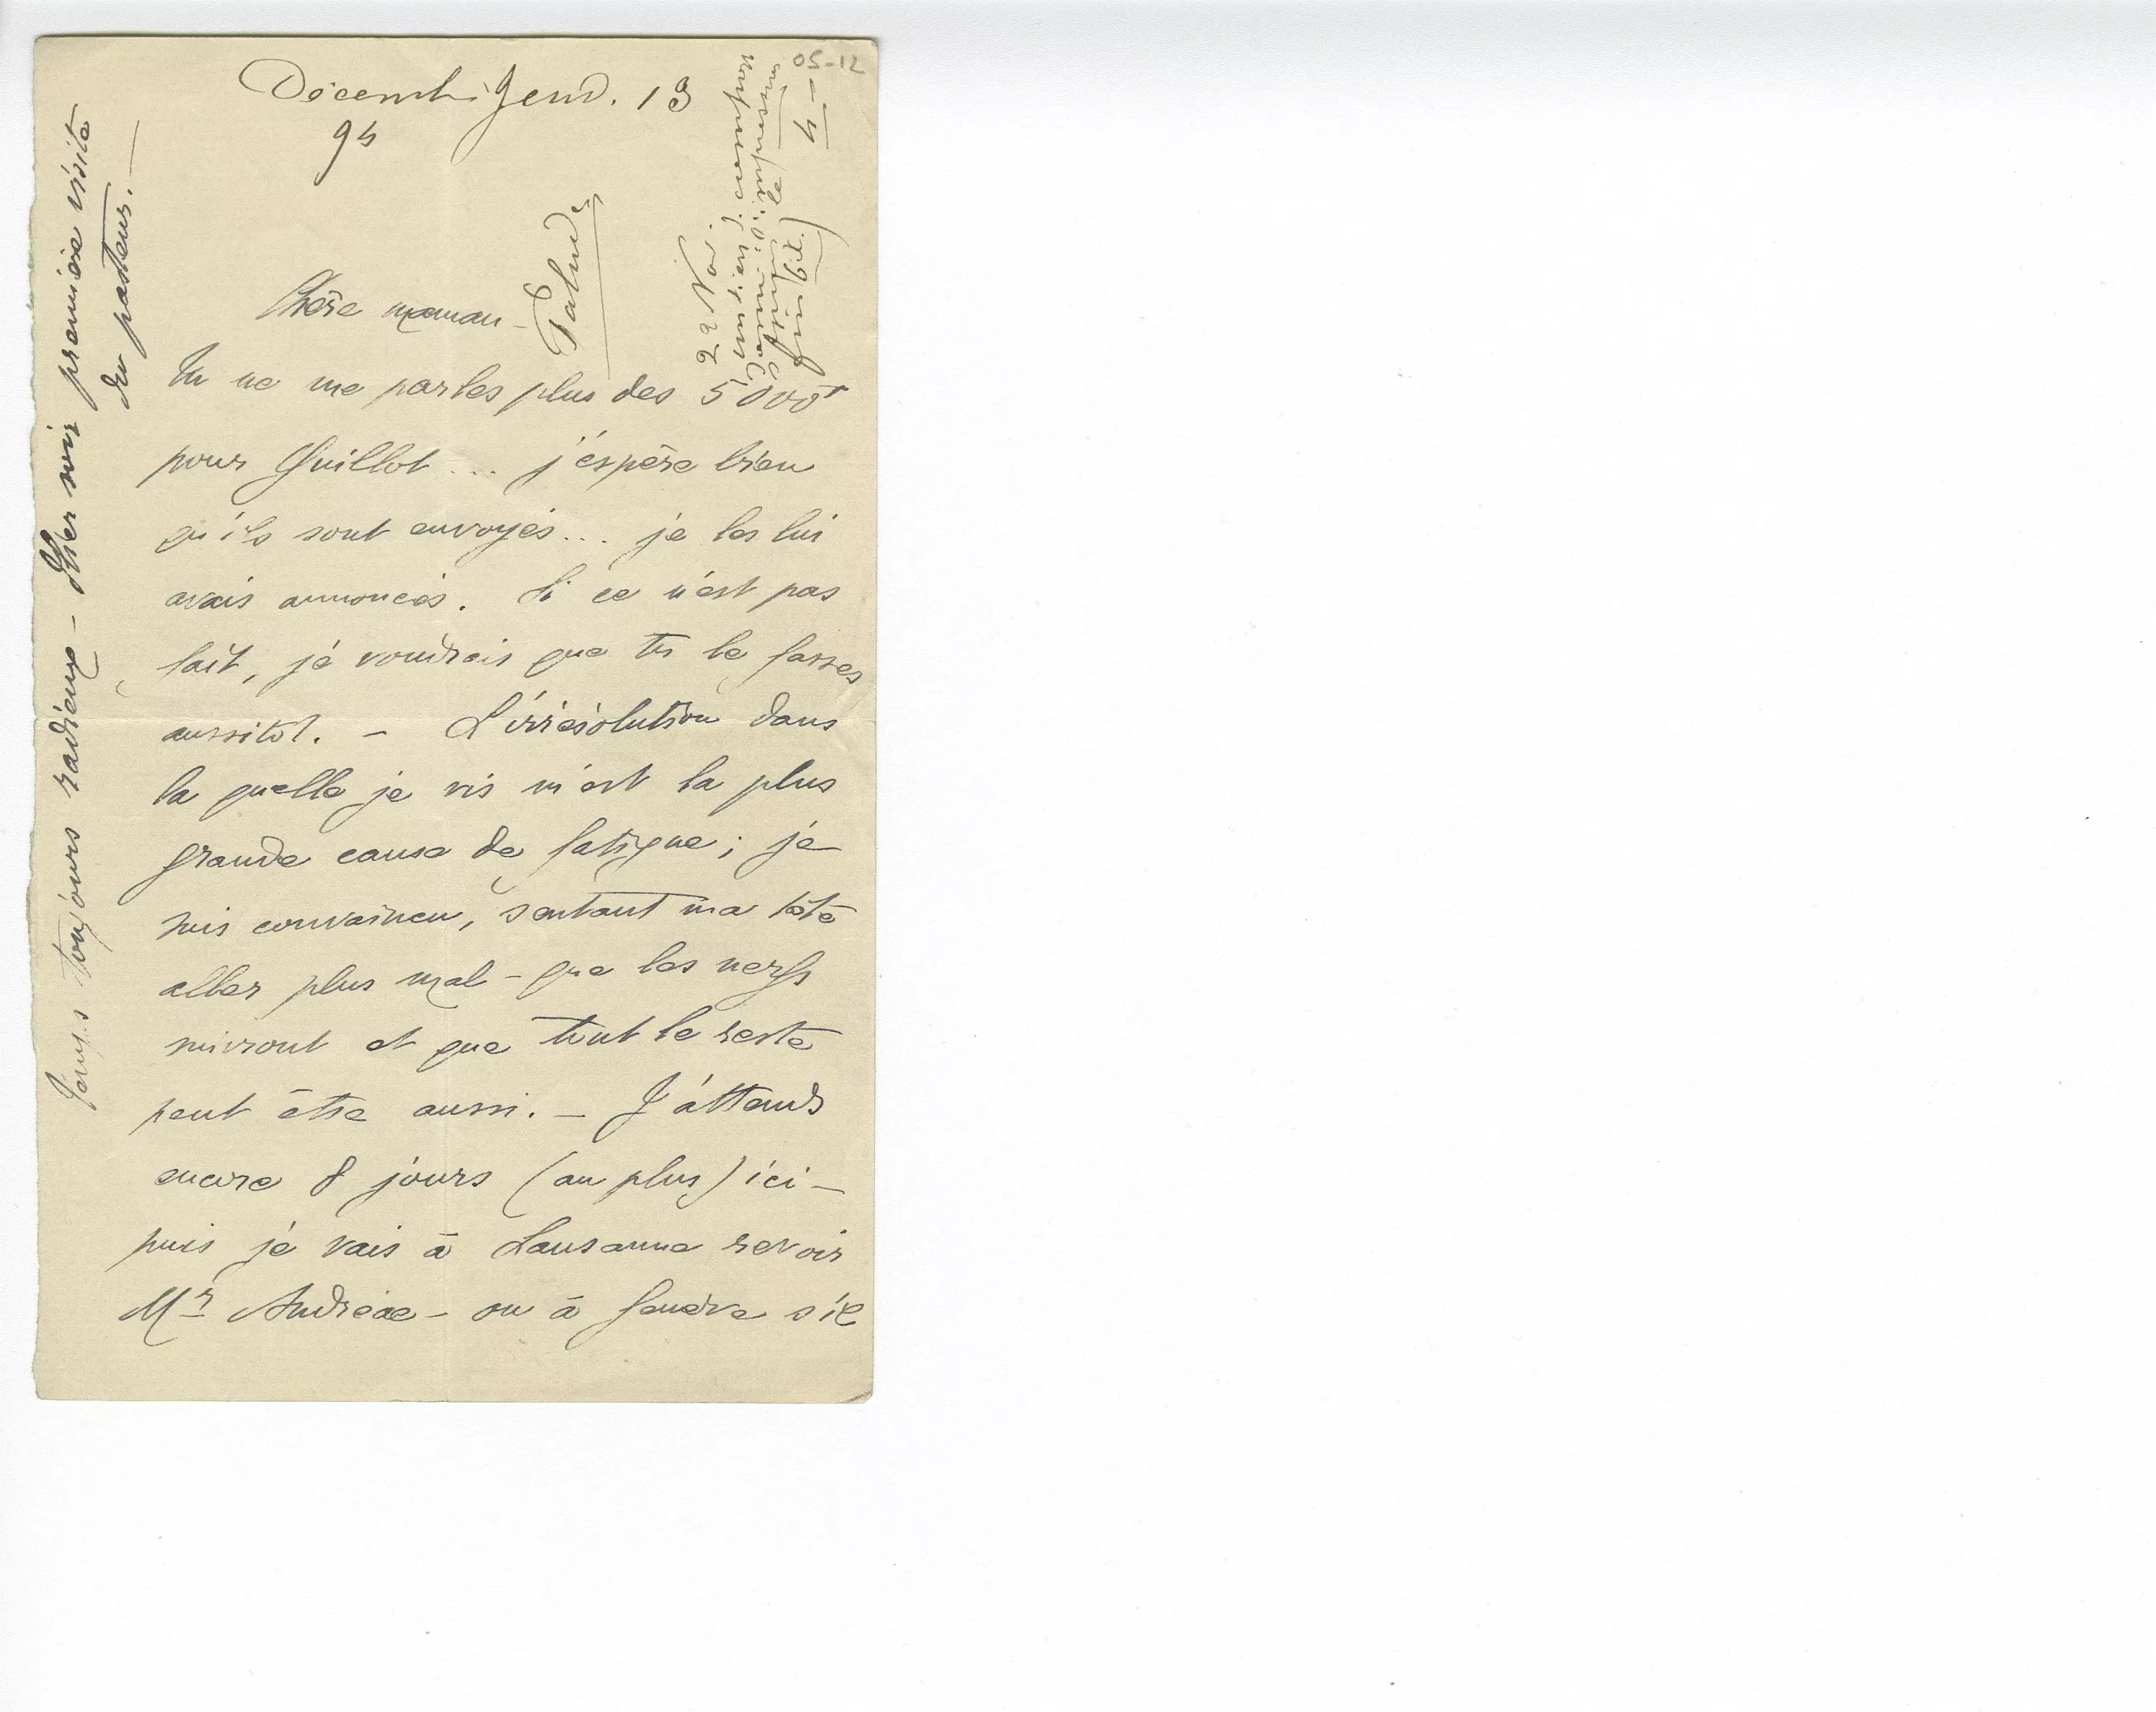 05-12
Décemb. Jeud. 13
94
Chère maman -
Palud
22 Nov.
4 -
Tu ne me parles plus des 5000 f
pour Guillot ... j'éspère bien
qu'ils sont envoyés ... je les lui
avais annoncés. Si ce n'est pas
fait, je voudrais que tu le fasses
aussitot. - L'irrésolution dans
la quelle je vis m'est la plus
grande cause de fatigue ; je
suis convaincu, sentant ma tête
aller plus mal - que les nerfs
suivront et que tout le reste
peut être aussi. - J'attends
encore 8 jours (au plus) ici -
puis je vais à Lausanne revoir
Mr Andreae - ou à Genève s'il
Temps toujours radieux - Hier soir première visite
du pasteur. -